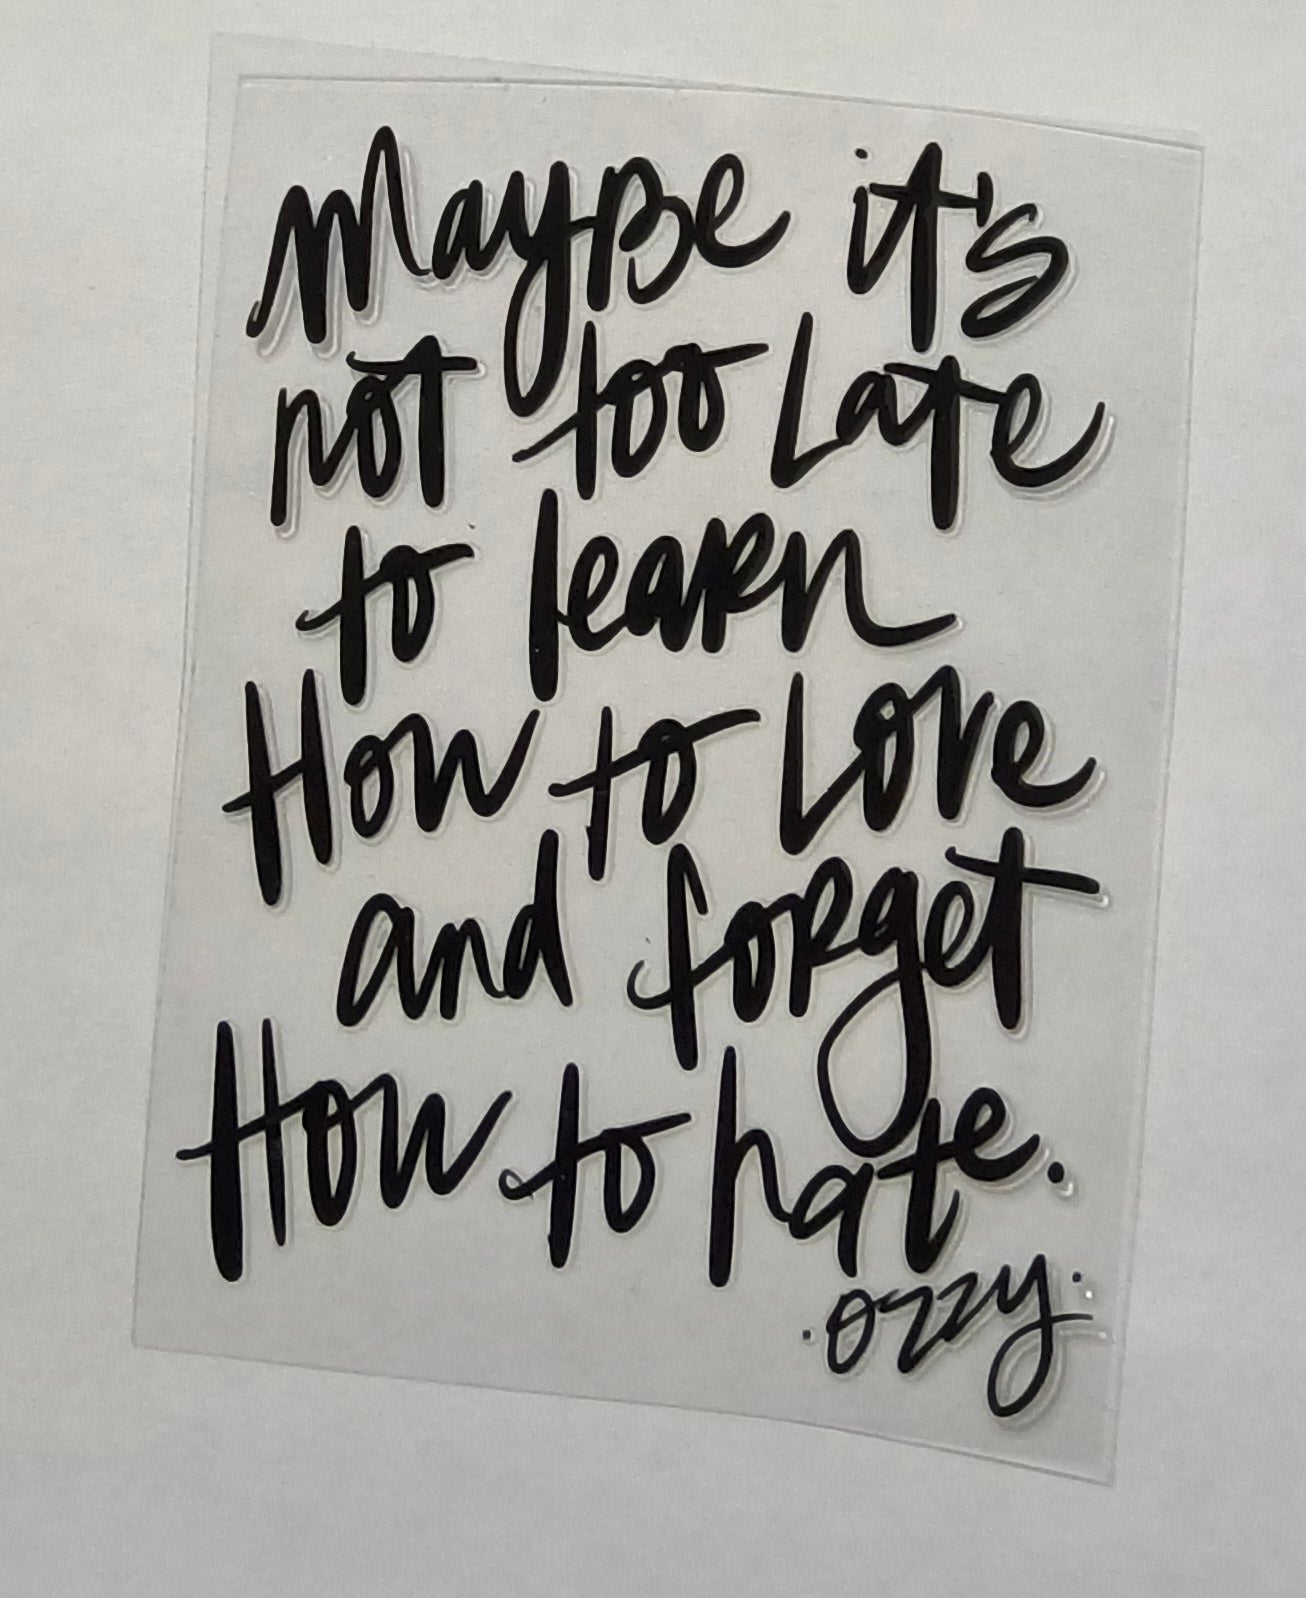 Maybe it's
not too Late
to learn
How to Love
and forget
How to hate.
.ozzy.